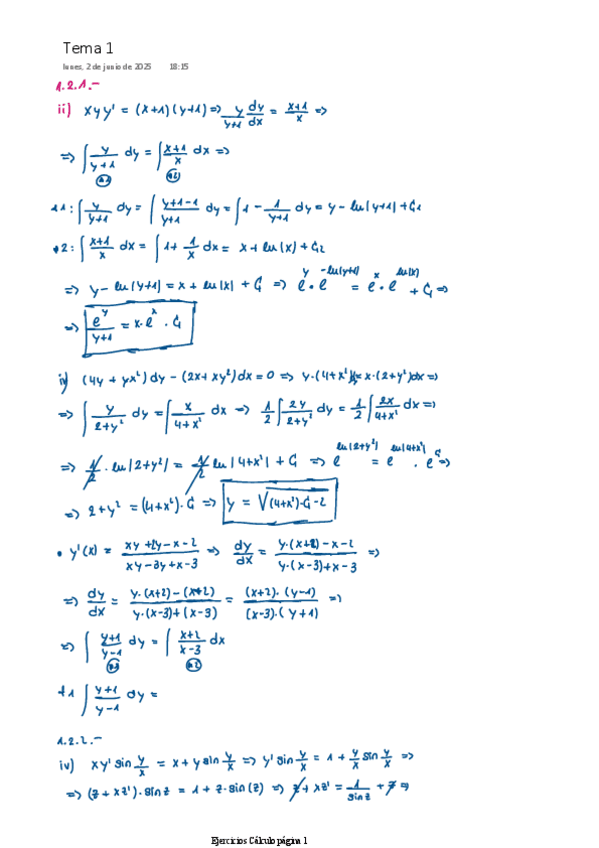 Tema 1
lunes, 2 de junio de 2025 18:15
1.2.1.-
ii) xyy' = (x+1)(y+1) => y/(y+1) dy/dx = (x+1)/x =>
=> ∫ y/(y+1) dy = ∫ (x+1)/x dx =>
*1 *2
*1: ∫ y/(y+1) dy = ∫ (y+1-1)/(y+1) dy = ∫ 1 - 1/(y+1) dy = y - ln|y+1| + C1
*2: ∫ (x+1)/x dx = ∫ 1 + 1/x dx = x + ln|x| + C2
=> y - ln|y+1| = x + ln|x| + C => e^y · e^(-ln|y+1|) = e^x · e^(ln|x|) + C =>
=> e^y/(y+1) = x·e^x · C
iv) (4y + yx²) dy - (2x + xy²) dx = 0 => y·(4+x²)dy = x·(2+y²)dx =>
=> ∫ y/(2+y²) dy = ∫ x/(4+x²) dx => 1/2 ∫ 2y/(2+y²) dy = 1/2 ∫ 2x/(4+x²) dx =>
=> 1/2 · ln|2+y²| = 1/2 ln|4+x²| + C => e^(ln|2+y²|) = e^(ln|4+x²|) · e^C =>
=> 2+y² = (4+x²)·C => y = √((4+x²)·C-2)
• y'(x) = (xy+2y-x-2)/(xy-3y+x-3) => dy/dx = (y·(x+2)-x-2)/(y·(x-3)+x-3) =>
=> dy/dx = (y·(x+2)-(x+2))/(y·(x-3)+(x-3)) = ((x+2)·(y-1))/((x-3)·(y+1)) =>
=> ∫ (y+1)/(y-1) dy = ∫ (x+2)/(x-3) dx
*1 *2
*1 ∫ (y+1)/(y-1) dy =
1.2.2.-
iv) xy' sin y/x = x + y sin y/x => y' sin y/x = 1 + y/x sin y/x =>
=> (z + xz')·sin z = 1 + z·sin(z) => z + xz' = 1/sin z + z =>
Ejercicios Cálculo página 1